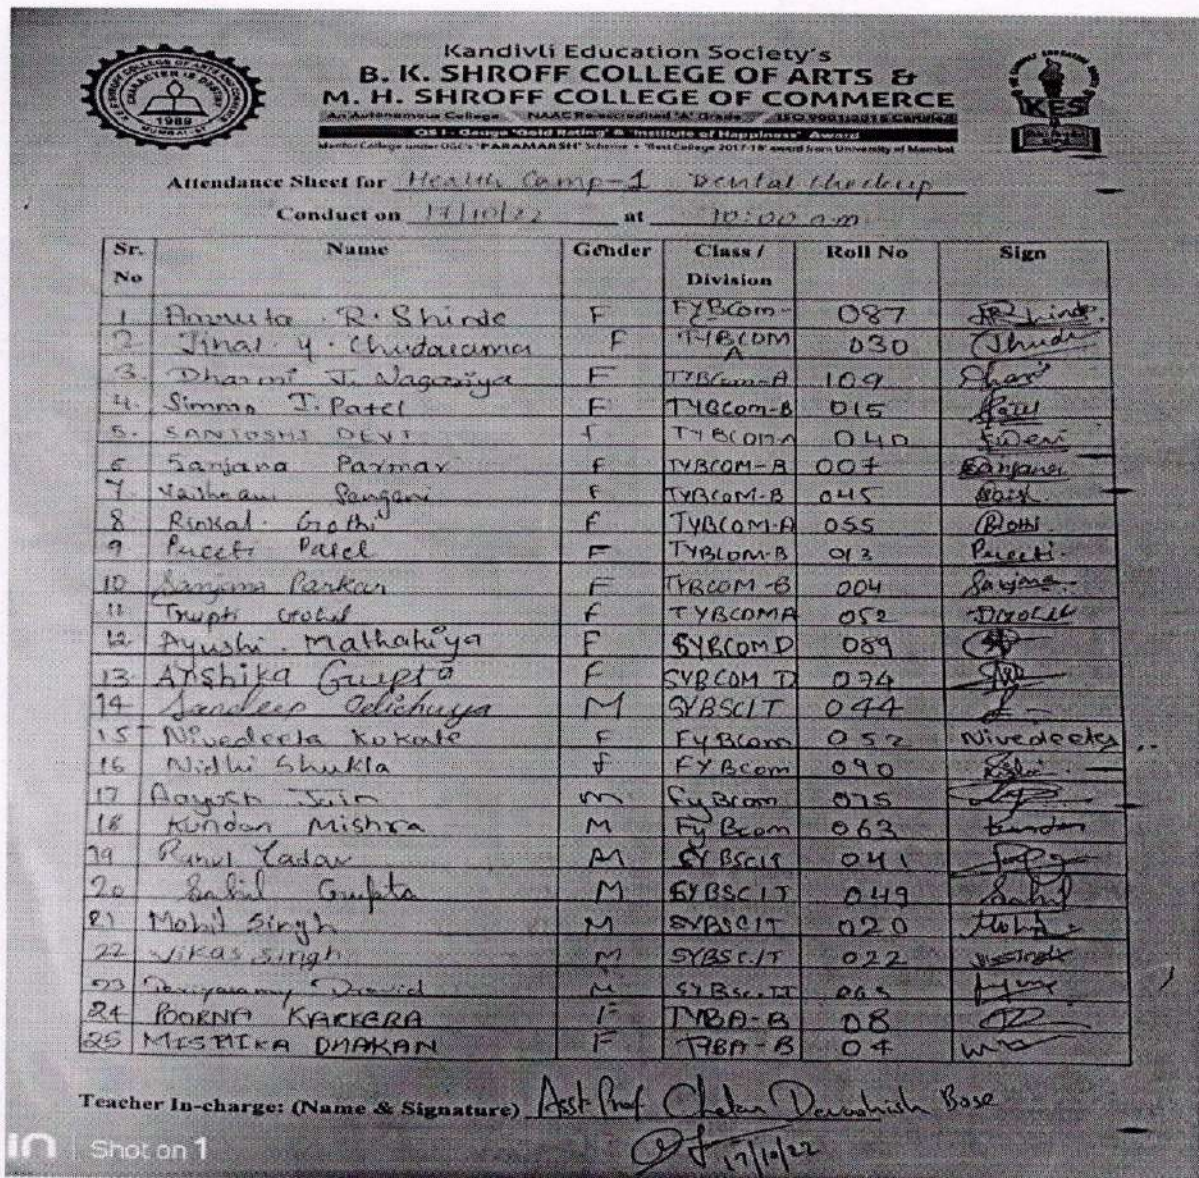 Kandivli Education Society's
B. K. SHROFF COLLEGE OF ARTS &
M. H. SHROFF COLLEGE OF COMMERCE
An Autonomous College NAAC Re-accredited 'A' Grade ISO 9001:2015 Certified
QS I - Gauge 'Gold Rating' & 'Institute of Happiness' Award
Mentor College under UGC's "PARAMARSH" Scheme • 'Best College 2017-18' award from University of Mumbai
CHARACTER IS DESTINY
1989
KES
Attendance Sheet for Health Camp-1 Dental Checkup
Conduct on 17/10/22 at 10:00 am
Sr. No Name Gender Class / Division Roll No Sign
1 Amruta R. Shinde F FYBCom- 087
2 Jinal Y. Chudasama F TYBCOM A 030
3. Dharmi J. Nagariya F TYBCom-A 109
4. Simmo J. Patel F TYBCom-B 015
5. SANTOSHI DEVI f TYBCOM A 040
6 Sanjana Parmar F TYBCOM-A 007 Sanjana
7 Sangani F TYBCOM-B 045
8 Rinkal Gothi F TYBCOM-A 055
9 Preeti Patel F TYBCOM-B 012 Preeti.
10 Sanjana Parkar F TYBCOM-B 004 Sanjana
11 Trupti Gohil f TYBCOMA 052
12. Ayushi. Mathakiya F SYBCOM D 089
13 Anshika Gupta F SYBCOM D 074
14 Sandeep M SYBSCIT 044
15 Nivedeeta Kokate F FYBCom 052 Nivedeeta
16 Nidhi Shukla f FYBcom 090
17 Aayush Jain m FyBcom 075
18 Kundan Mishra M Fy Bcom 063 kundan
19 Rahul Yadav M SYBSCIT 041
20 Sahil Gupta M SYBSCIT 049 Sahil
21 Mohit Singh M SYBSCIT 020 Mohit
22 Vikas singh M SYBSC.IT 022
23 M SYBSc.IT 065
24 POORNA KARKERA F TYBA-B 08
25 MISTIKA DHAKAN F TYBA-B 04
Teacher In-charge: (Name & Signature) Asst. Prof. Chetan Devashish Bose
17/10/22
Shot on 1